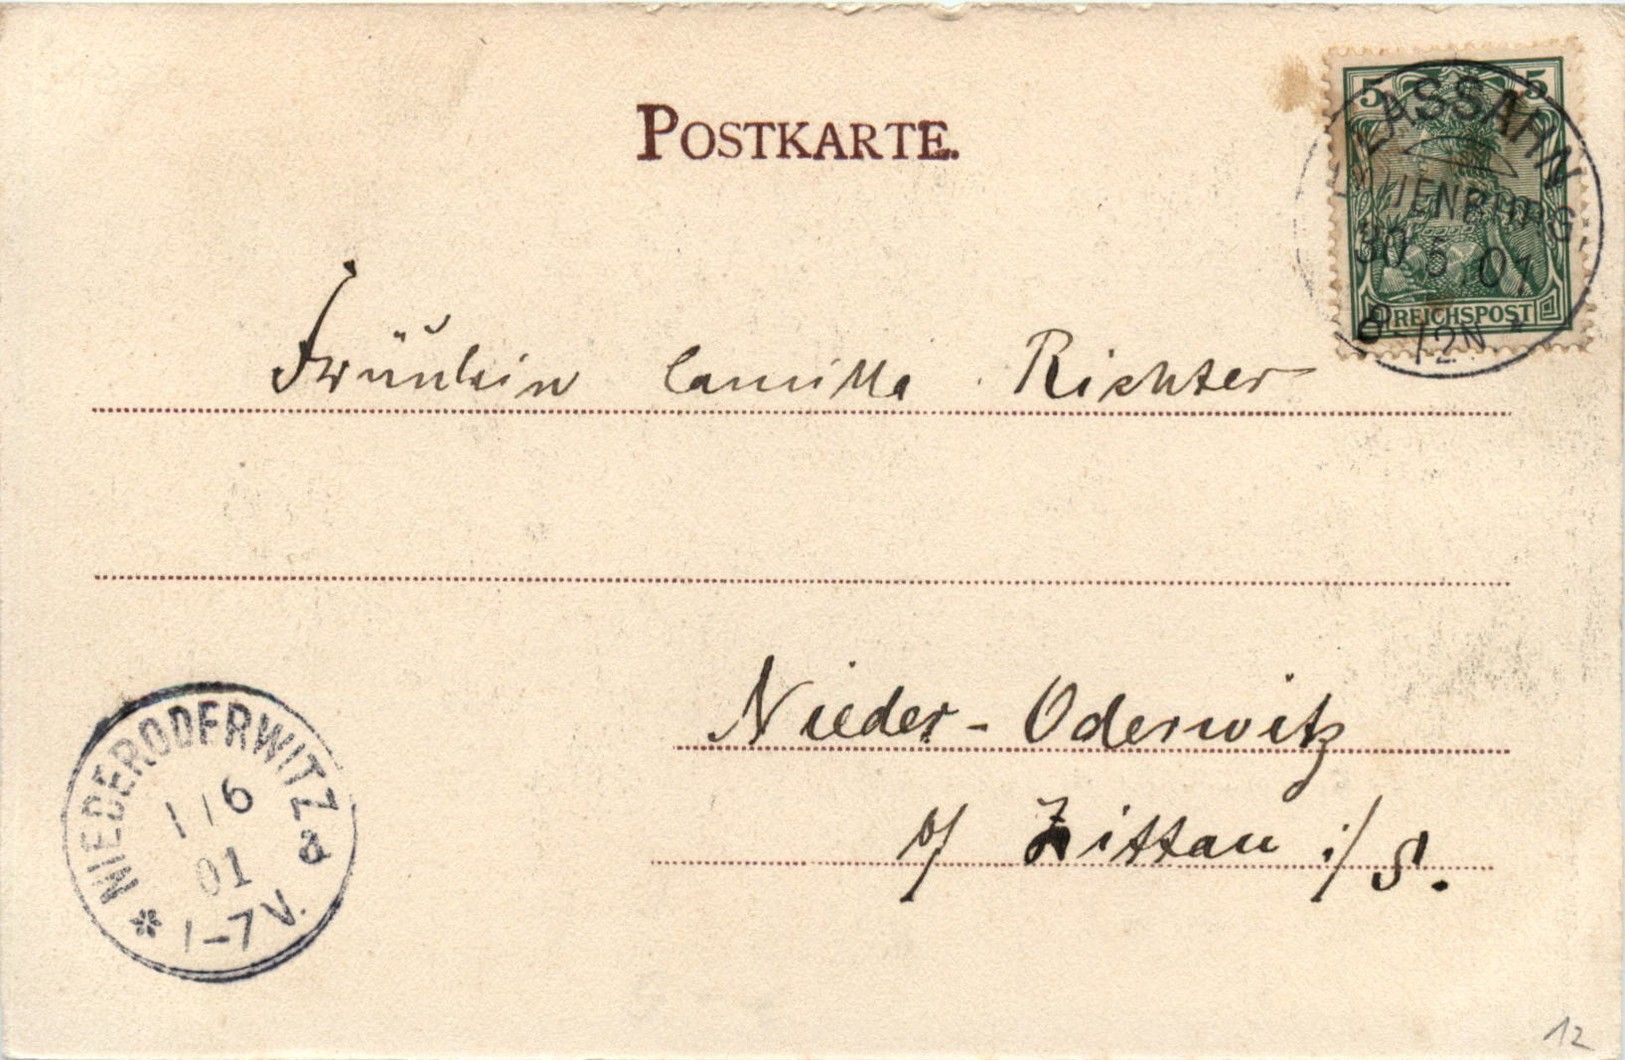 POSTKARTE.
5 5
REICHSPOST
LASSAHN
30 5 01
12N
Fräulein Camilla Richter
Nieder-Oderwitz
b/ Zittau i/S.
NIEDERODERWITZ
1/6
01
* 1-7V. a
12